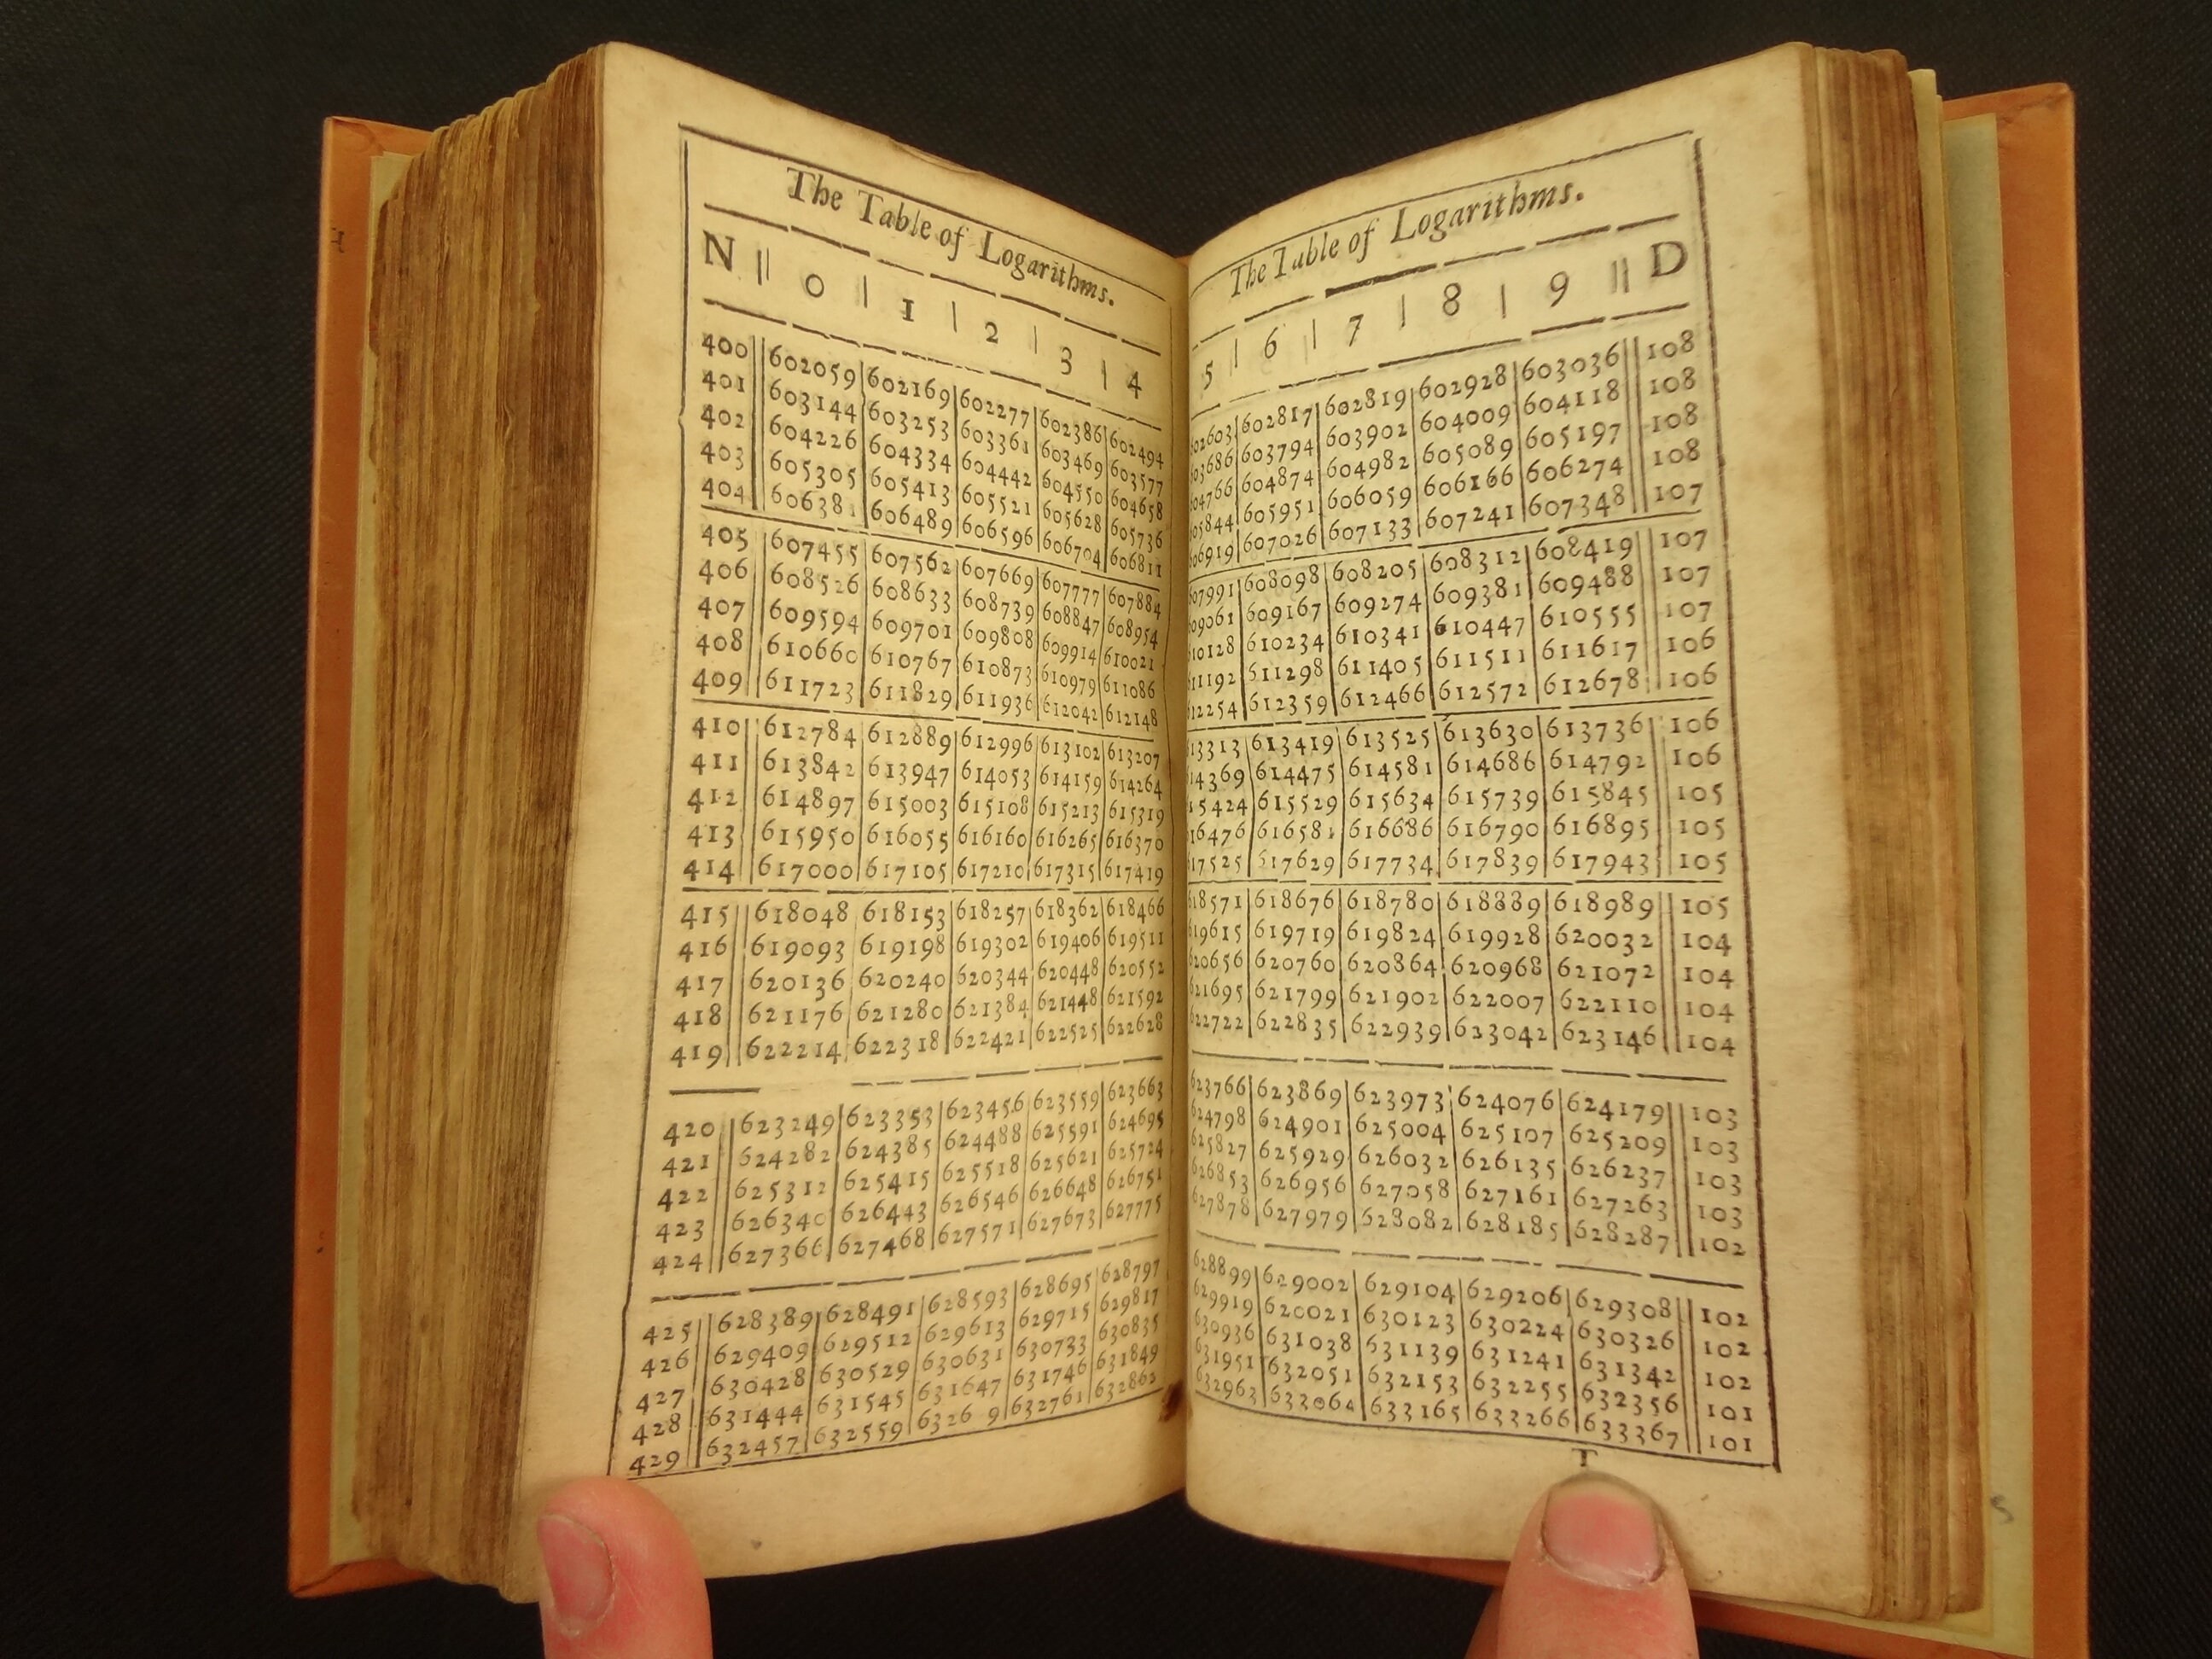 The Table of Logarithms.
N 0 1 2 3 4
400 602059 602169 602277 602386 602494
401 603144 603253 603361 603469 603577
402 604226 604334 604442 604550 604658
403 605305 605413 605521 605628 605736
404 606381 606489 606596 606704 606811
405 607455 607562 607669 607777 607884
406 608526 608633 608739 608847 608954
407 609594 609701 609808 609914 610021
408 610660 610767 610873 610979 611086
409 611723 611829 611936 612042 612148
410 612784 612889 612996 613102 613207
411 613842 613947 614053 614159 614264
412 614897 615003 615108 615213 615319
413 615950 616055 616160 616265 616370
414 617000 617105 617210 617315 617419
415 618048 618153 618257 618362 618466
416 619093 619198 619302 619406 619511
417 620136 620240 620344 620448 620552
418 621176 621280 621384 621448 621592
419 622214 622318 622421 622525 622628
420 623249 623353 623456 623559 623663
421 624282 624385 624488 625591 624695
422 625312 625415 625518 625621 625724
423 626340 626443 626546 626648 626751
424 627366 627468 627571 627673 627775
425 628389 628491 628593 628695 628797
426 629409 629512 629613 629715 629817
427 630428 630529 630631 630733 630835
428 631444 631545 631647 631746 631849
429 632457 632559 6326 9 632761 632862
The Table of Logarithms.
5 6 7 8 9 D
602603 602817 602819 602928 603036 108
603686 603794 603902 604009 604118 108
604766 604874 604982 605089 605197 108
605844 605951 606059 606166 606274 108
606919 607026 607133 607241 607348 107
607991 608098 608205 608312 608419 107
609061 609167 609274 609381 609488 107
610128 610234 610341 610447 610555 107
611192 611298 611405 611511 611617 106
612254 612359 612466 612572 612678 106
613313 613419 613525 613630 613736 106
614369 614475 614581 614686 614792 106
615424 615529 615634 615739 615845 105
616476 616581 616686 616790 616895 105
617525 617629 617734 617839 617943 105
618571 618676 618780 618889 618989 105
619615 619719 619824 619928 620032 104
620656 620760 620864 620968 621072 104
621695 621799 621902 622007 622110 104
622722 622835 622939 623042 623146 104
623766 623869 623973 624076 624179 103
624798 624901 625004 625107 625209 103
625827 625929 626032 626135 626237 103
626853 626956 627058 627161 627263 103
627878 627979 628082 628185 628287 102
628899 629002 629104 629206 629308 102
629919 620021 630123 630224 630326 102
630936 631038 631139 631241 631342 102
631951 632051 632153 632255 632356 101
632963 633064 633165 633266 633367 101
T